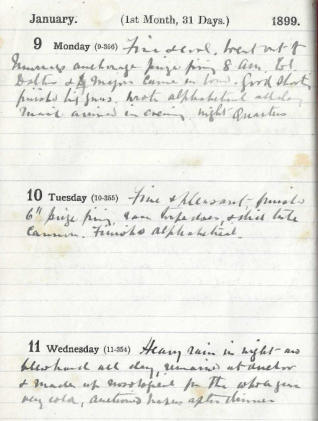 January. (1st Month, 31 Days.) 1899.
9 Monday (9-356) Fine & cool. Went out to
anchorage prize firing 8 am. Col.
& Major came in tow. Good shooting
finish big guns. Wrote alphabetical all day
mail arrived in evening, night Quarters
10 Tuesday (10-355) Fine & pleasant, finish
6" prize firing, ran torpedoes, & tube
cannon. Finish alphabetical.
11 Wednesday (11-354) Heavy rain in night and
blew hard all day, remained at anchor
& made up for the
very cold, auctioned after dinner